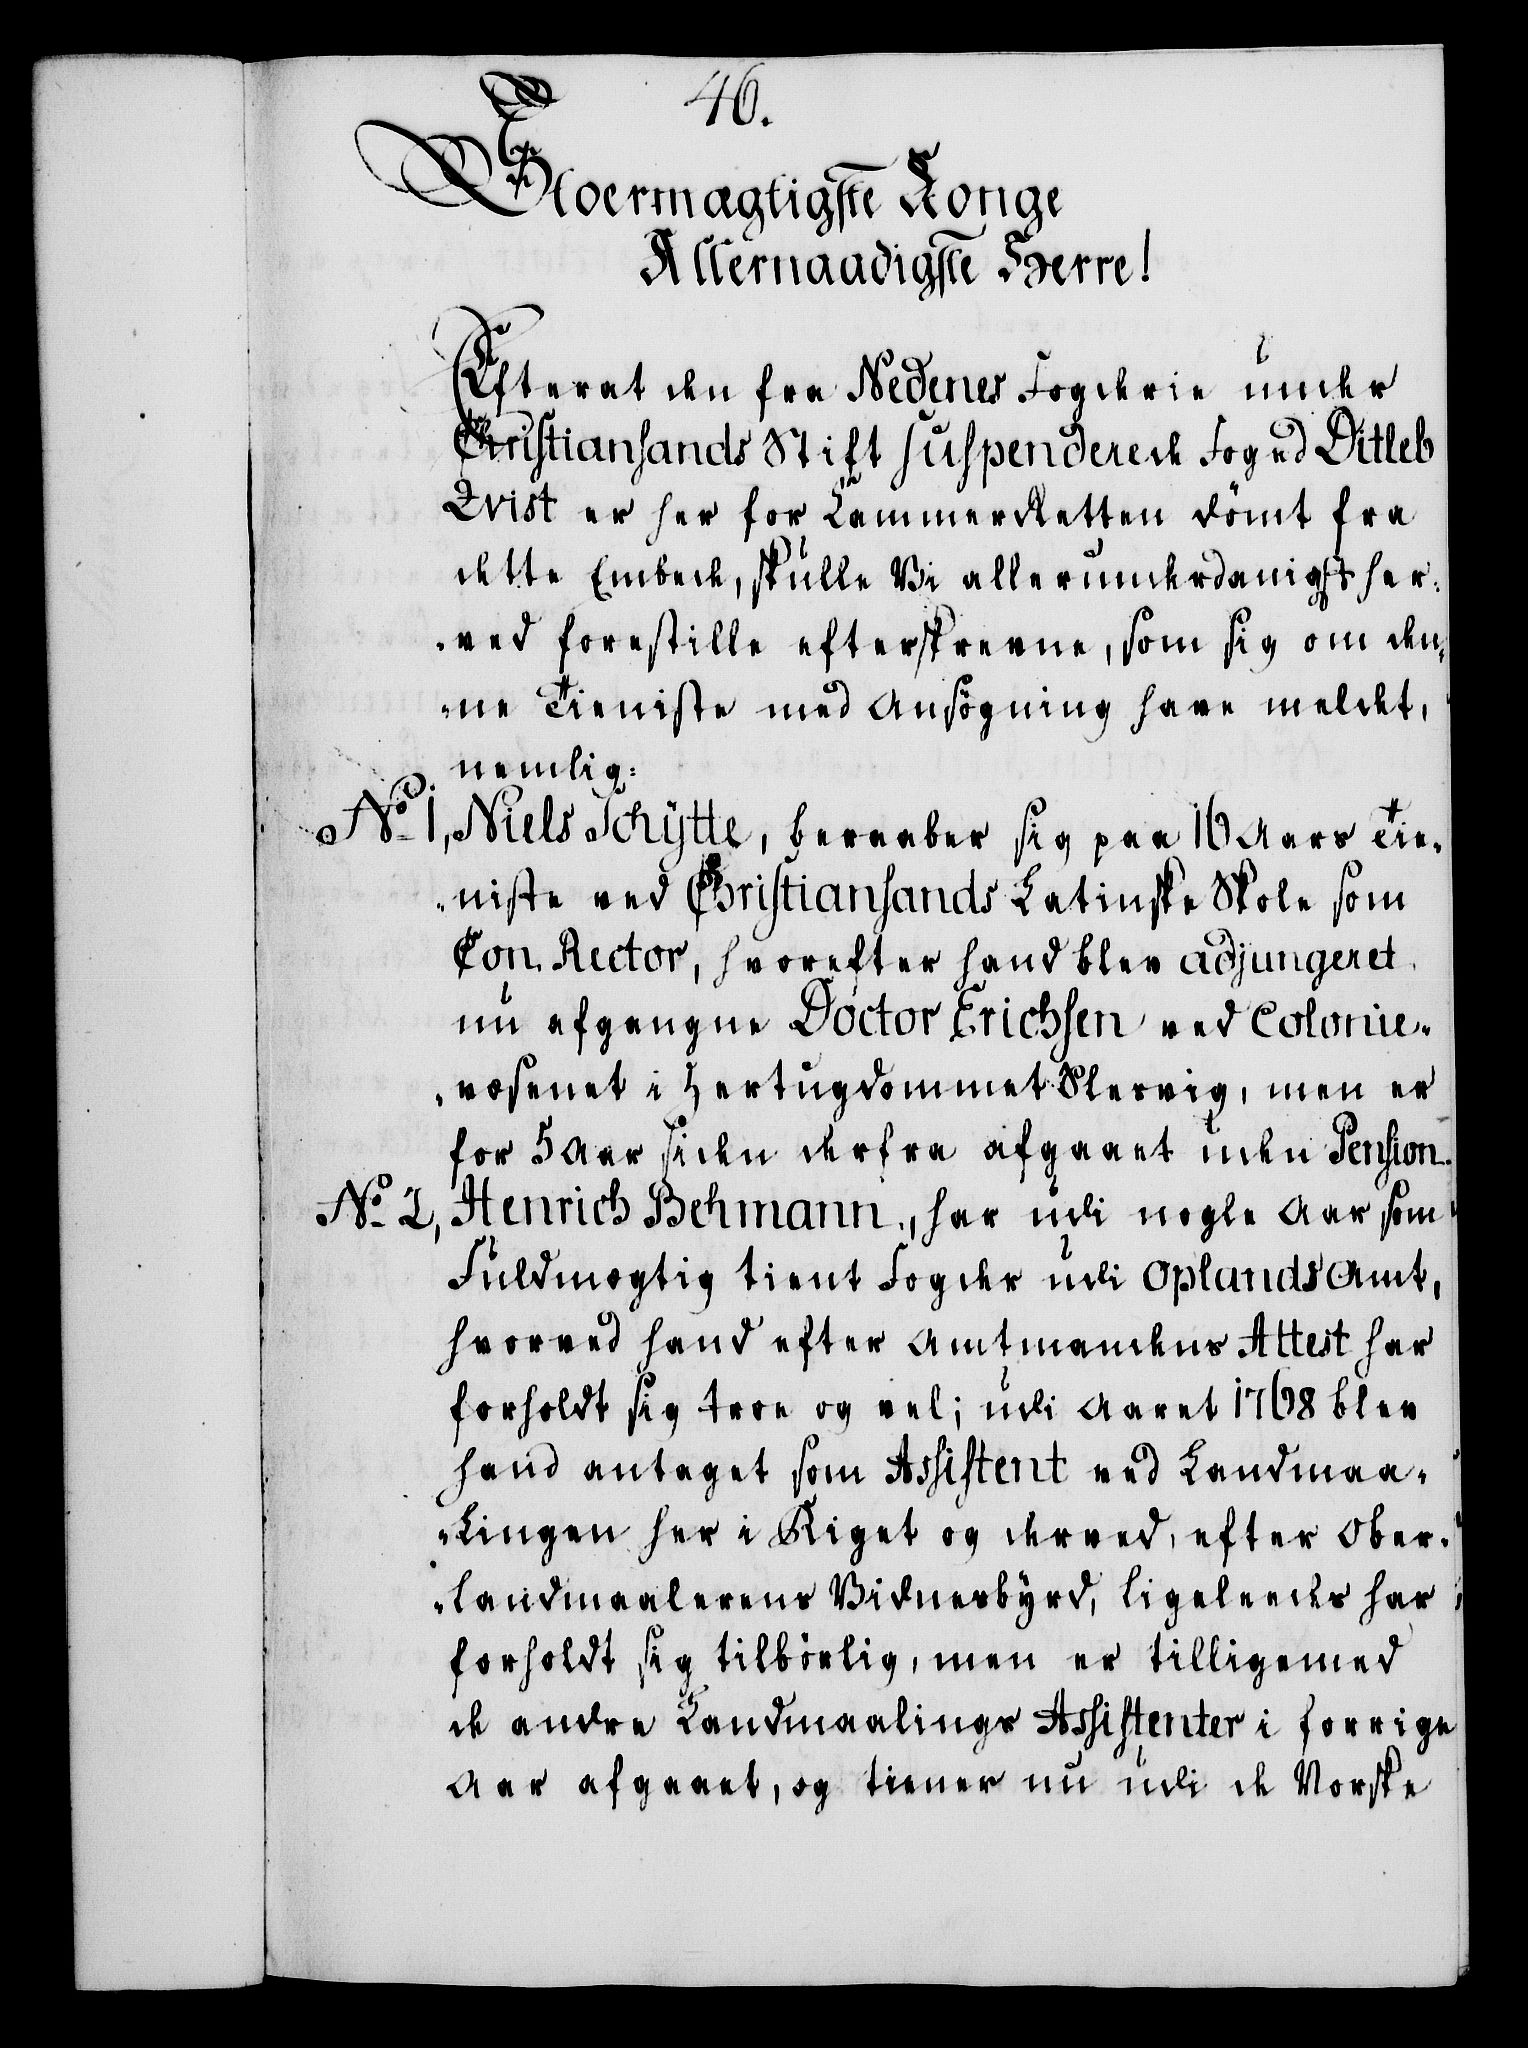 46.
Stoermægtigste Konge
Allernaadigste Herre!
Efterat den fra Nedenes Fogderie under
Christiansands Stift suspenderede Foged Ditleb
Qvist er her for CammerRetten dömt fra
dette Embede, skulle Vi allerunderdanigst her-
-ved forestille efterskrevne, som sig om den-
-ne Tieniste med Ansögning have meldet,
nemlig:
No 1, Niels Schytte, beraaber sig paa 16 Aars Tie-
-niste ved Christiansands Latinske Skole som
Con. Rector, hvorefter hand blev adjungeret
nu afgangne Doctor Erichsen ved Colonie-
-væsenet i Hertugdommet Slesvig, men er
for 5 Aar siden derfra afgaaet uden Pension.
No 2, Henrich Behmann, har udi nogle Aar som
Fuldmægtig tient Fogder udi Oplands Amt,
hvorved hand efter Amtmandens Attest har
forholdt sig troe og vel; udi Aaret 1768 blev
hand antaget som Assistent ved Landmaa-
-lingen her i Riget og derved, efter Ober-
-landmaalerens Vidnesbyrd, ligeleedes har
forholdt sig tilbörlig, men er tilligemed
de andre Landmaalings Assistenter i forrige
Aar afgaaet, og tiener nu udi de Norske